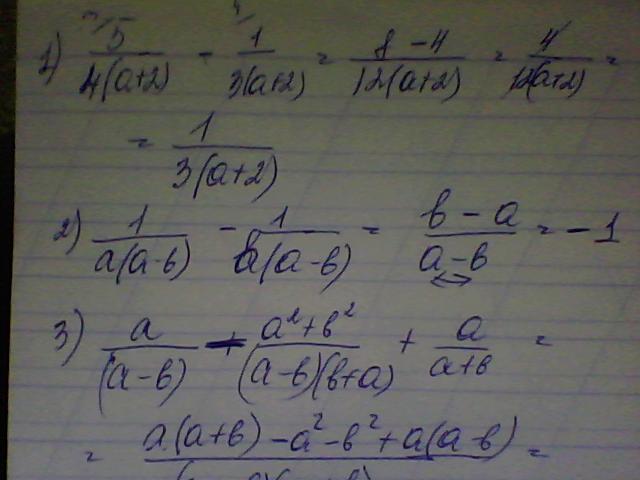 1) 5/4(a+2) - 1/3(a+2) = 8-4/12(a+2) = 4/12(a+2) =
= 1/3(a+2)
2) 1/a(a-b) - 1/b(a-b) = b-a/a-b = -1
3) a/(a-b) - a²+b²/(a-b)(b+a) + a/a+b =
= a(a+b)-a²-b²+a(a-b) =